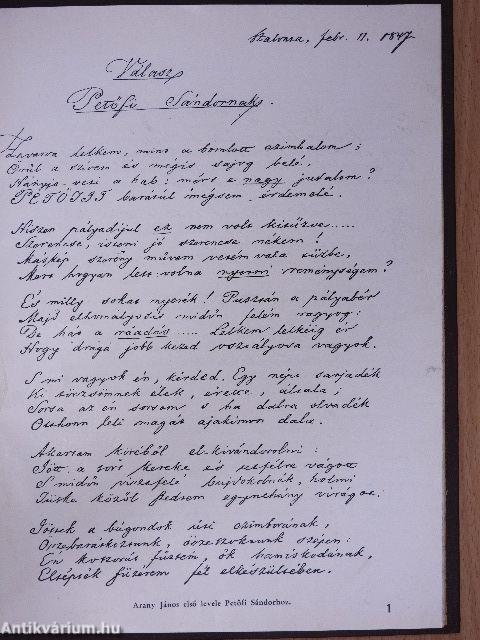 Szalonta, febr. 11. 1847
Válasz
Petőfi Sándornak.
Zavarva lelkem, mint a bomlott cimbalom;
Örűl a szívem és mégis sajog belé,
Hányja veti a hab: mért e nagy jutalom?
PETŐFIT barátul mégsem érdemelé.
Hiszen pályadíjul ez nem volt kitűzve.....
Szerencse, isteni jó szerencse nékem!
Máskép szerény művem vetém vala tűzbe,
Mert hogyan lett volna nyerni reménységem?
És milly sokat nyerék! Pusztán a pályabér
Majd elhomályosít midőn felém ragyog:
De hát a ráadás..... Lelkem lelkéig ér
Hogy drága jobb kezed osztályosa vagyok.
S mi vagyok én, kérded. Egy népi sarjadék
Ki törzsömnek élek, érette, általa;
Sorsa az én sorsom s ha dalra olvadék
Otthon leli magát ajakimon dala.
Akartam köréből el-kivándorolni:
Jött a sors kereke és útfélre vágott
S midőn visszafelé bujdokolnék, holmi
Tüske közől szedtem egynehány virágot.
Jöttek a búgondok úti czimborának,
Összebarátkoztunk, összeszoktunk szépen:
Én koszorút fűztem, ők hamiskodának,
Eltépték fűzérem fél elkészültében.
Arany János első levele Petőfi Sándorhoz.
1
Antikvárium.hu